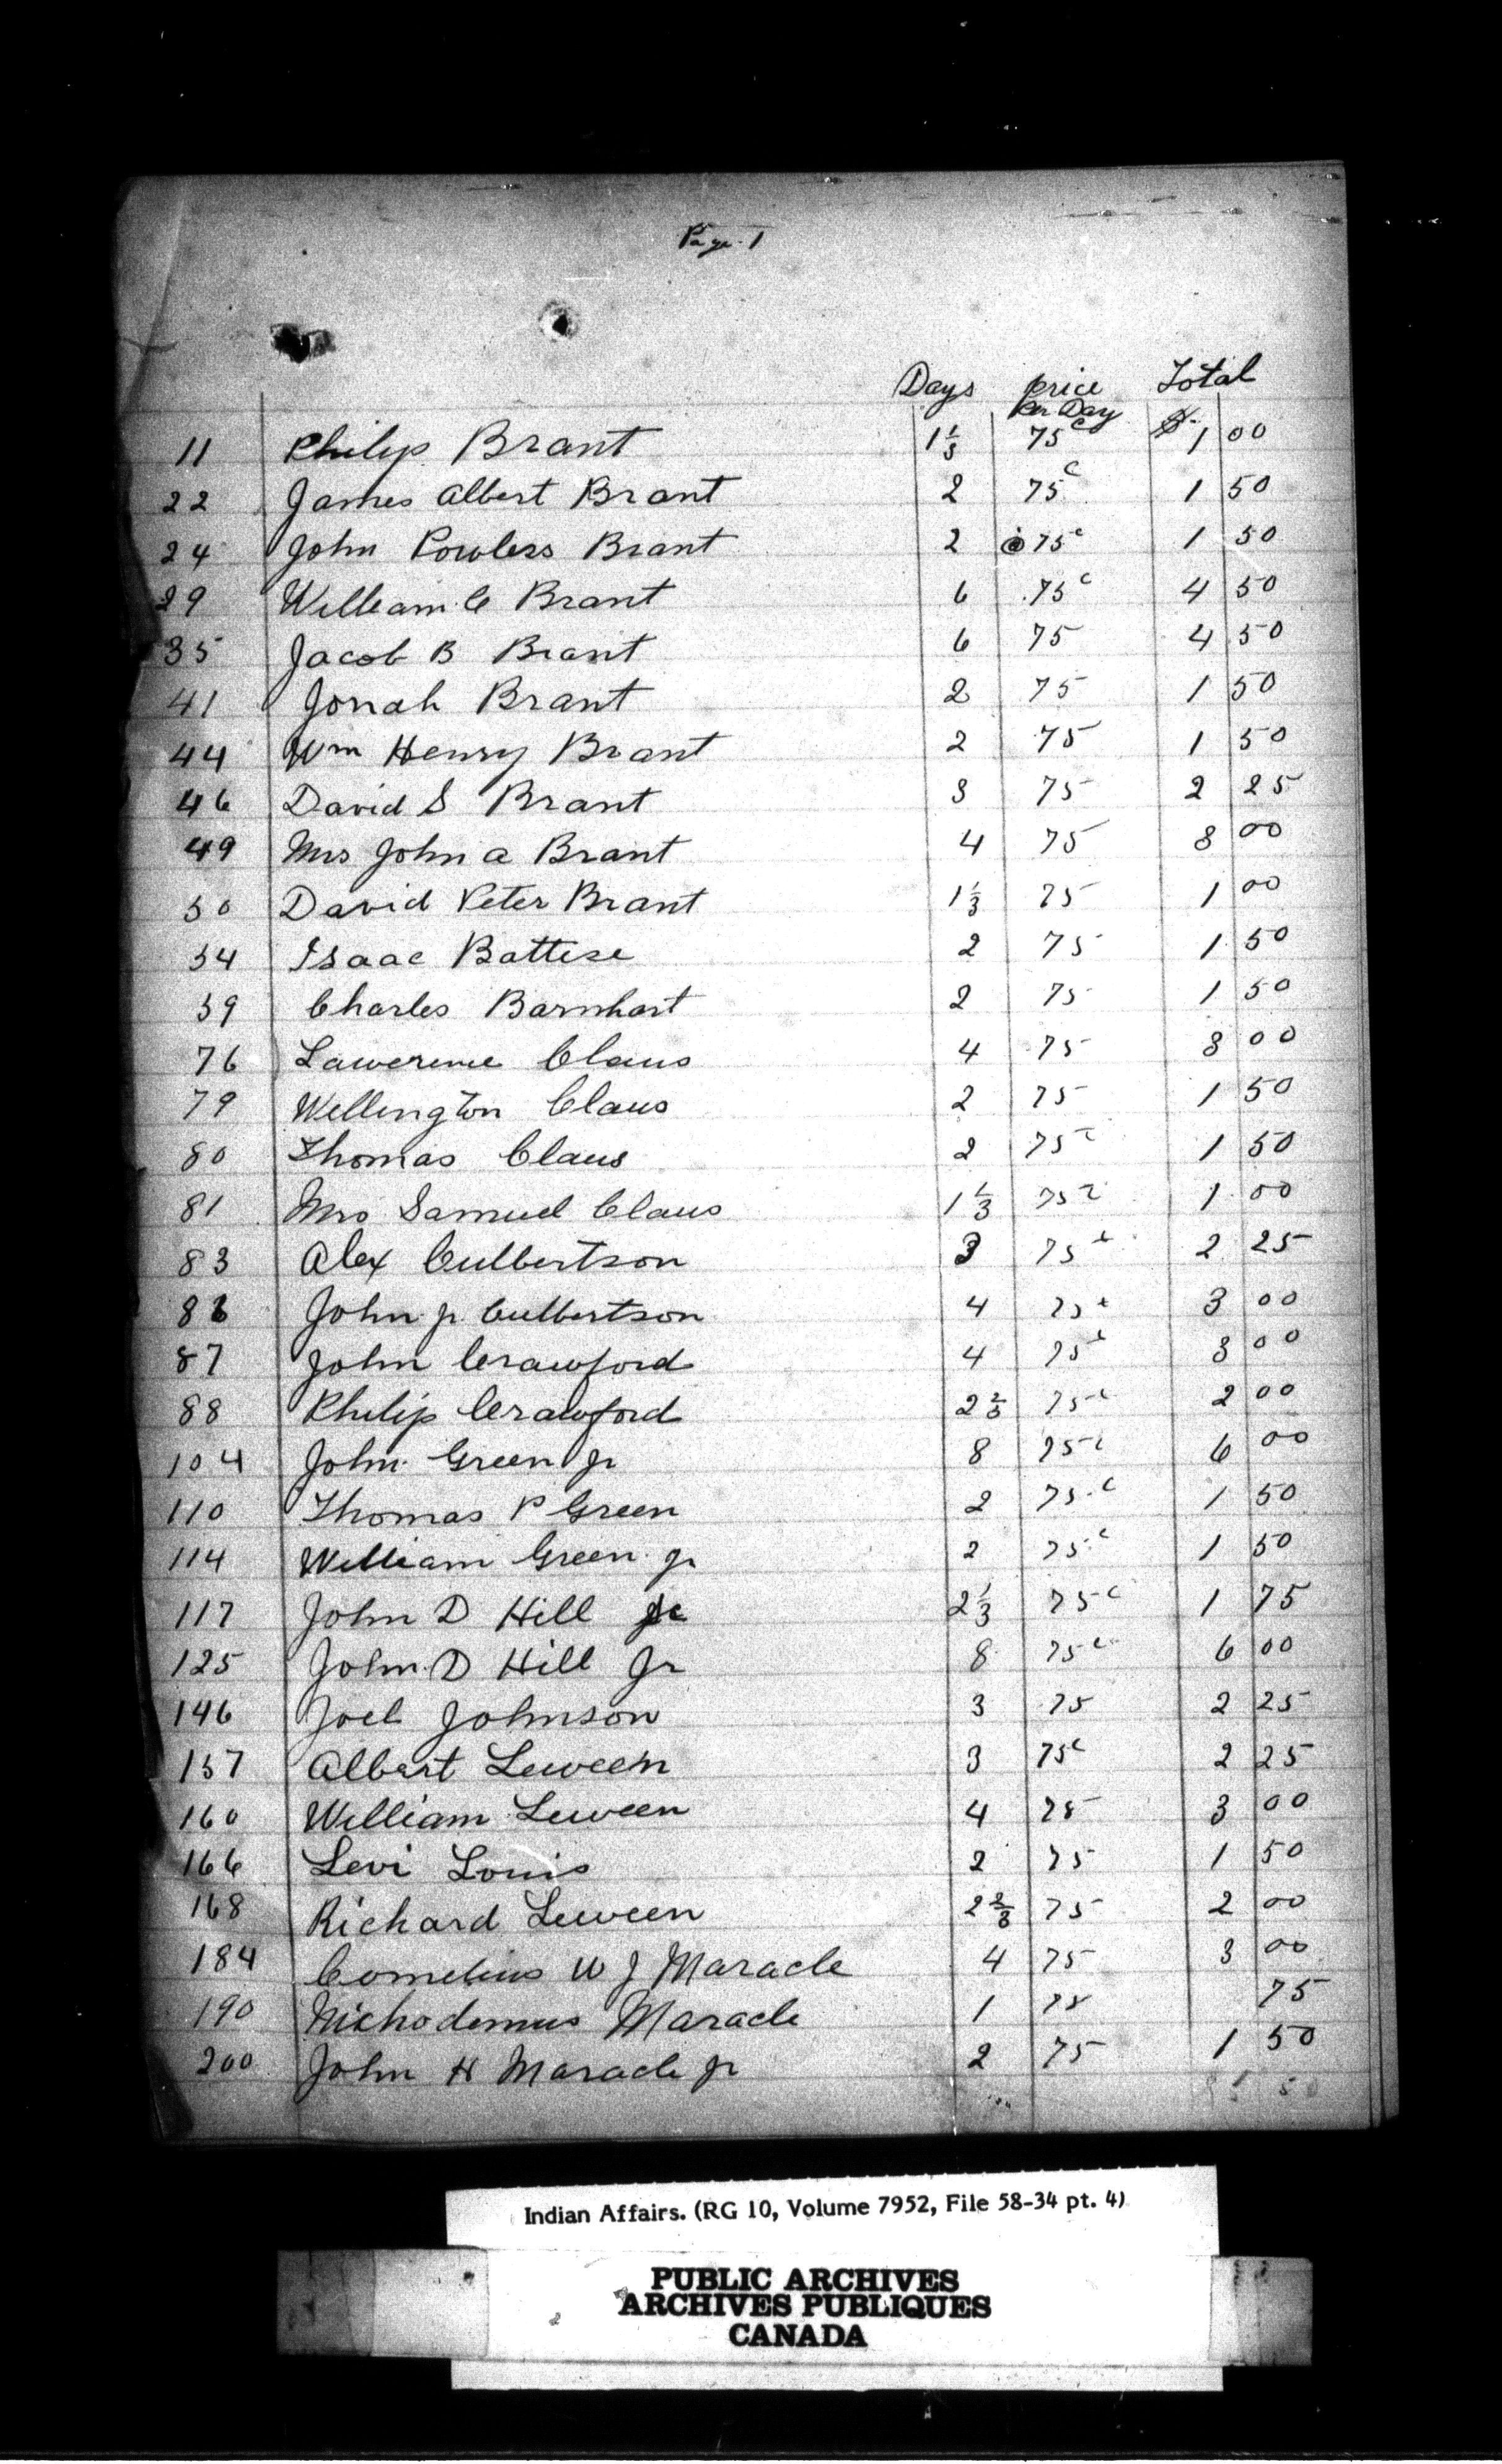 Page 1
Days price Total
Per Day
11 Philip Brant 1 1/3 75c $ 1 00
22 James Albert Brant 2 75c 1 50
24 John Powless Brant 2 @ 75c 1 50
29 William C Brant 6 75c 4 50
35 Jacob B Brant 6 75 4 50
41 Jonah Brant 2 75 1 50
44 Wm Henry Brant 2 75 1 50
46 David S Brant 3 75 2 25
49 Mrs John A Brant 4 75 3 00
50 David Peter Brant 1 1/3 75 1 00
54 Isaac Battese 2 75 1 50
59 Charles Barnhart 2 75 1 50
76 Lawerence Claus 4 75 3 00
79 Wellington Claus 2 75 1 50
80 Thomas Claus 2 75c 1 50
81 Mrs Samuel Claus 1 1/3 75c 1 00
83 Alex Culbertson 3 75c 2 25
86 John jr Culbertson 4 75c 3 00
87 John Crawford 4 75c 3 00
88 Philip Crawford 2 2/3 75c 2 00
104 John Green Jr 8 75c 6 00
110 Thomas P Green 2 75c 1 50
114 William Green Jr 2 75c 1 50
117 John D Hill 2 1/3 75c 1 75
125 John D Hill Jr 8 75c 6 00
146 Joel Johnson 3 75 2 25
157 Albert Leween 3 75c 2 25
160 William Leween 4 75 3 00
166 Levi Louis 2 75 1 50
168 Richard Leween 2 2/3 75 2 00
184 Cornelius W J Maracle 4 75 3 00
190 Nichodemus Maracle 1 75 75
200 John H Maracle jr 2 75 1 50
Indian Affairs. (RG 10, Volume 7952, File 58-34 pt. 4)
PUBLIC ARCHIVES
ARCHIVES PUBLIQUES
CANADA